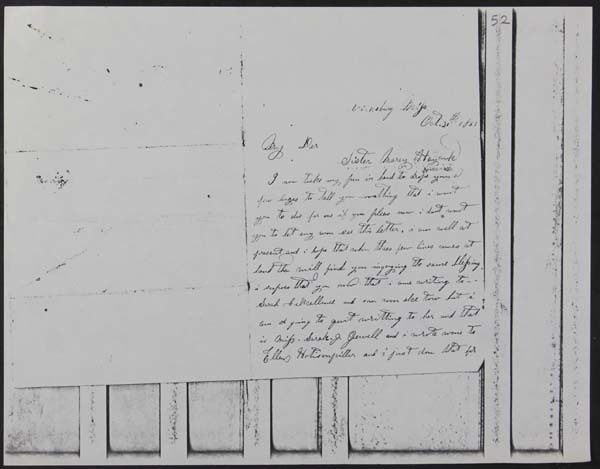 52
Miss
Oct 30th 1861
My Der
Sister Marey
I now take my pen in hand to drop you a
few lines to tell you somthing that i want
you to do for me if you pleas now i dont want
you to let any won see this letter. i am well at
present and i hope that when these few lines comes at
hand tha will find you injoying the same blessing.
i supose that you now that i am writing to
Sarah and won else tow but i
am going to quit writting to her and that
is Miss Sarah J Jewell and i wrote wons to
Ellen and i just don that for